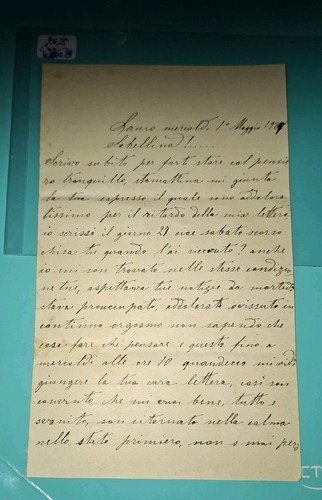 Lauro mercoldi, 1° Maggio 19
Isbellina!.....
Scrivo subito per farti stare col pensie
ro tranquillo, stamattina mi giunta
la tua espresso il quale sono addolora
tissimo per il ritardo della mia lettera
io scrissi il giorno 27 sabato scorso
chisa tu quando l'ai ricevuto? anche
io mi son trovato nelle stesse condizio
ne tue, aspettava tue notizie da martedi
stava preoccupato, addolorato vissuto in
continuo orgasmo non sapendo che
cosa fare che pensare e questo fino a
mercoldi alle ore 10 quandecco mi vidi
giungere la tua cara lettera, così son
convinto che mi vuoi bene, tutto e
svanito, son ritornato nella calma
nello stato primiero, non o mai per